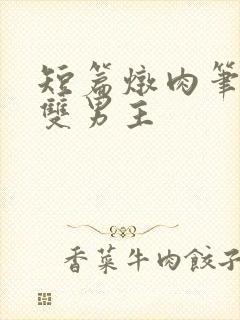 短篇燉肉筆
雙男主
香菜牛肉餃子